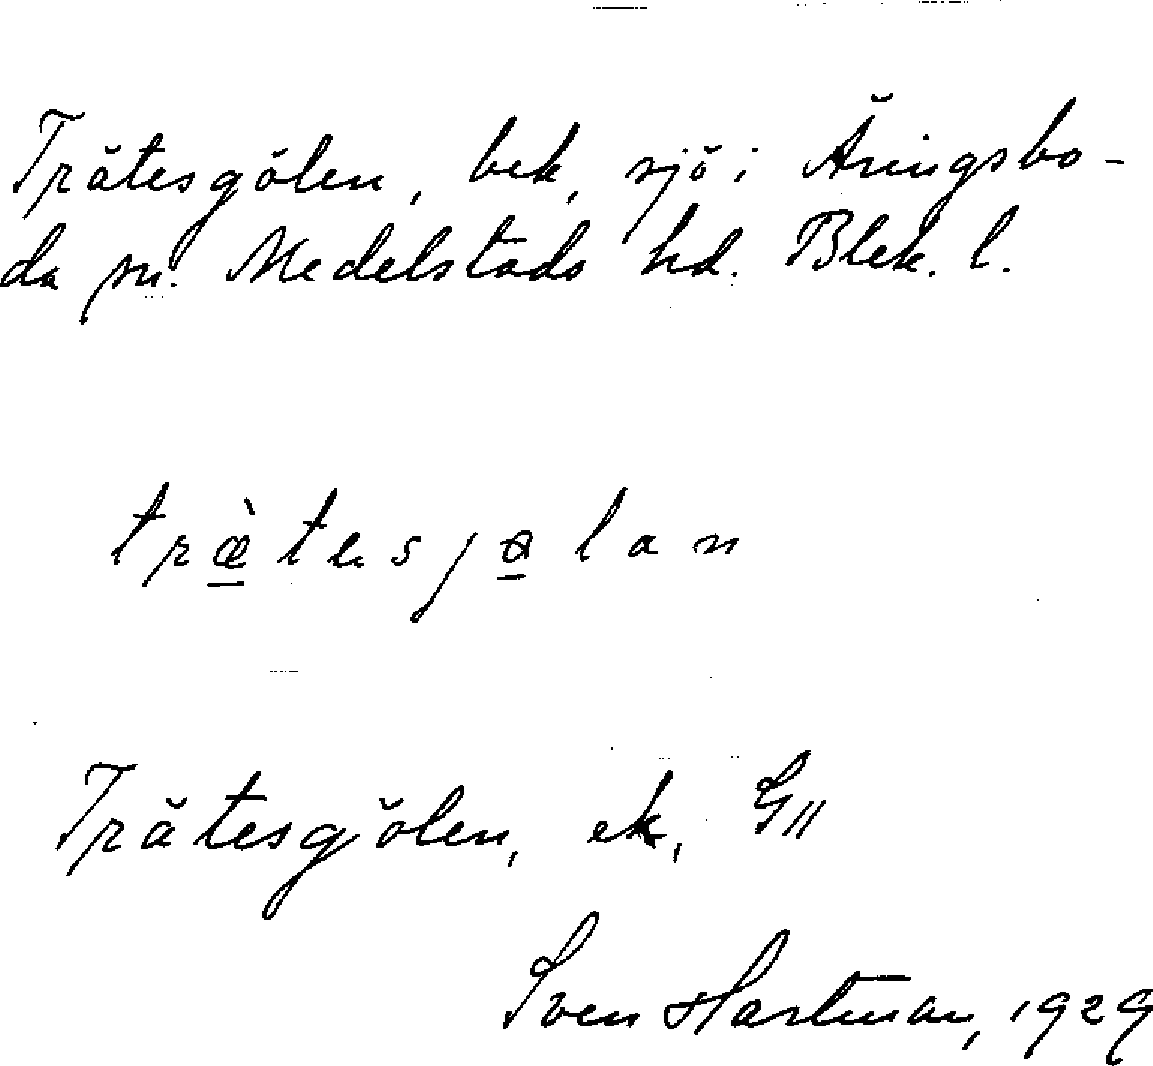 Trätesgölen, bek, sjö i Äringsbo-
da sn. Medelstads hd. Blek. l.
træ̀tesjølan
Trätesgölen, ek, G11
Sven Hartman, 1929